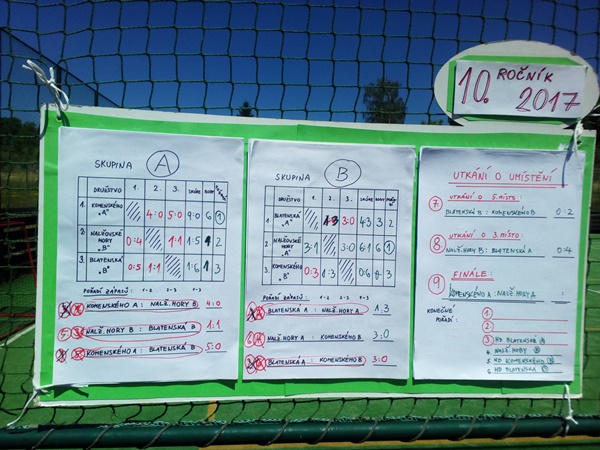 10. ROČNÍK
2017
SKUPINA A
DRUŽSTVO 1. 2. 3. SKÓRE BODY
1. KOMENSKÉHO "A" 4:0 5:0 9:0 6 1
2. NALŽOVSKÉ HORY "B" 0:4 1:1 1:5 1 2
3. BLATENSKÁ "B" 0:5 1:1 1:6 1 3
POŘADÍ ZÁPASŮ:
KOMENSKÉHO A : NALŽ. HORY B 4:0
NALŽ. HORY B : BLATENSKÁ B 1:1
KOMENSKÉHO A : BLATENSKÁ B 5:0
SKUPINA B
DRUŽSTVO 1. 2. 3. SKÓRE BODY
1. BLATENSKÁ "A" 1:3 3:0 4:3 3 2
2. NALŽOVSKÉ HORY "A" 3:1 3:0 6:1 6 1
3. KOMENSKÉHO "B" 0:3 0:3 0:6 0 3
POŘADÍ ZÁPASŮ:
BLATENSKÁ A : NALŽ. HORY A 1:3
NALŽ. HORY A : KOMENSKÉHO B 3:0
BLATENSKÁ A : KOMENSKÉHO B 3:0
UTKÁNÍ O UMÍSTĚNÍ
7 UTKÁNÍ O 5. MÍSTO:
BLATENSKÁ B : KOMENSKÉHO B 0:2
8 UTKÁNÍ O 3. MÍSTO:
NALŽ. HORY B : BLATENSKÁ A 0:4
9 FINÁLE:
KOMENSKÉHO A : NALŽ. HORY A :
KONEČNÉ
POŘADÍ:
1.
2.
3. HD BLATENSKÁ A
4. NALŽ. HORY B
5. HD KOMENSKÉHO B
6. HD BLATENSKÁ B